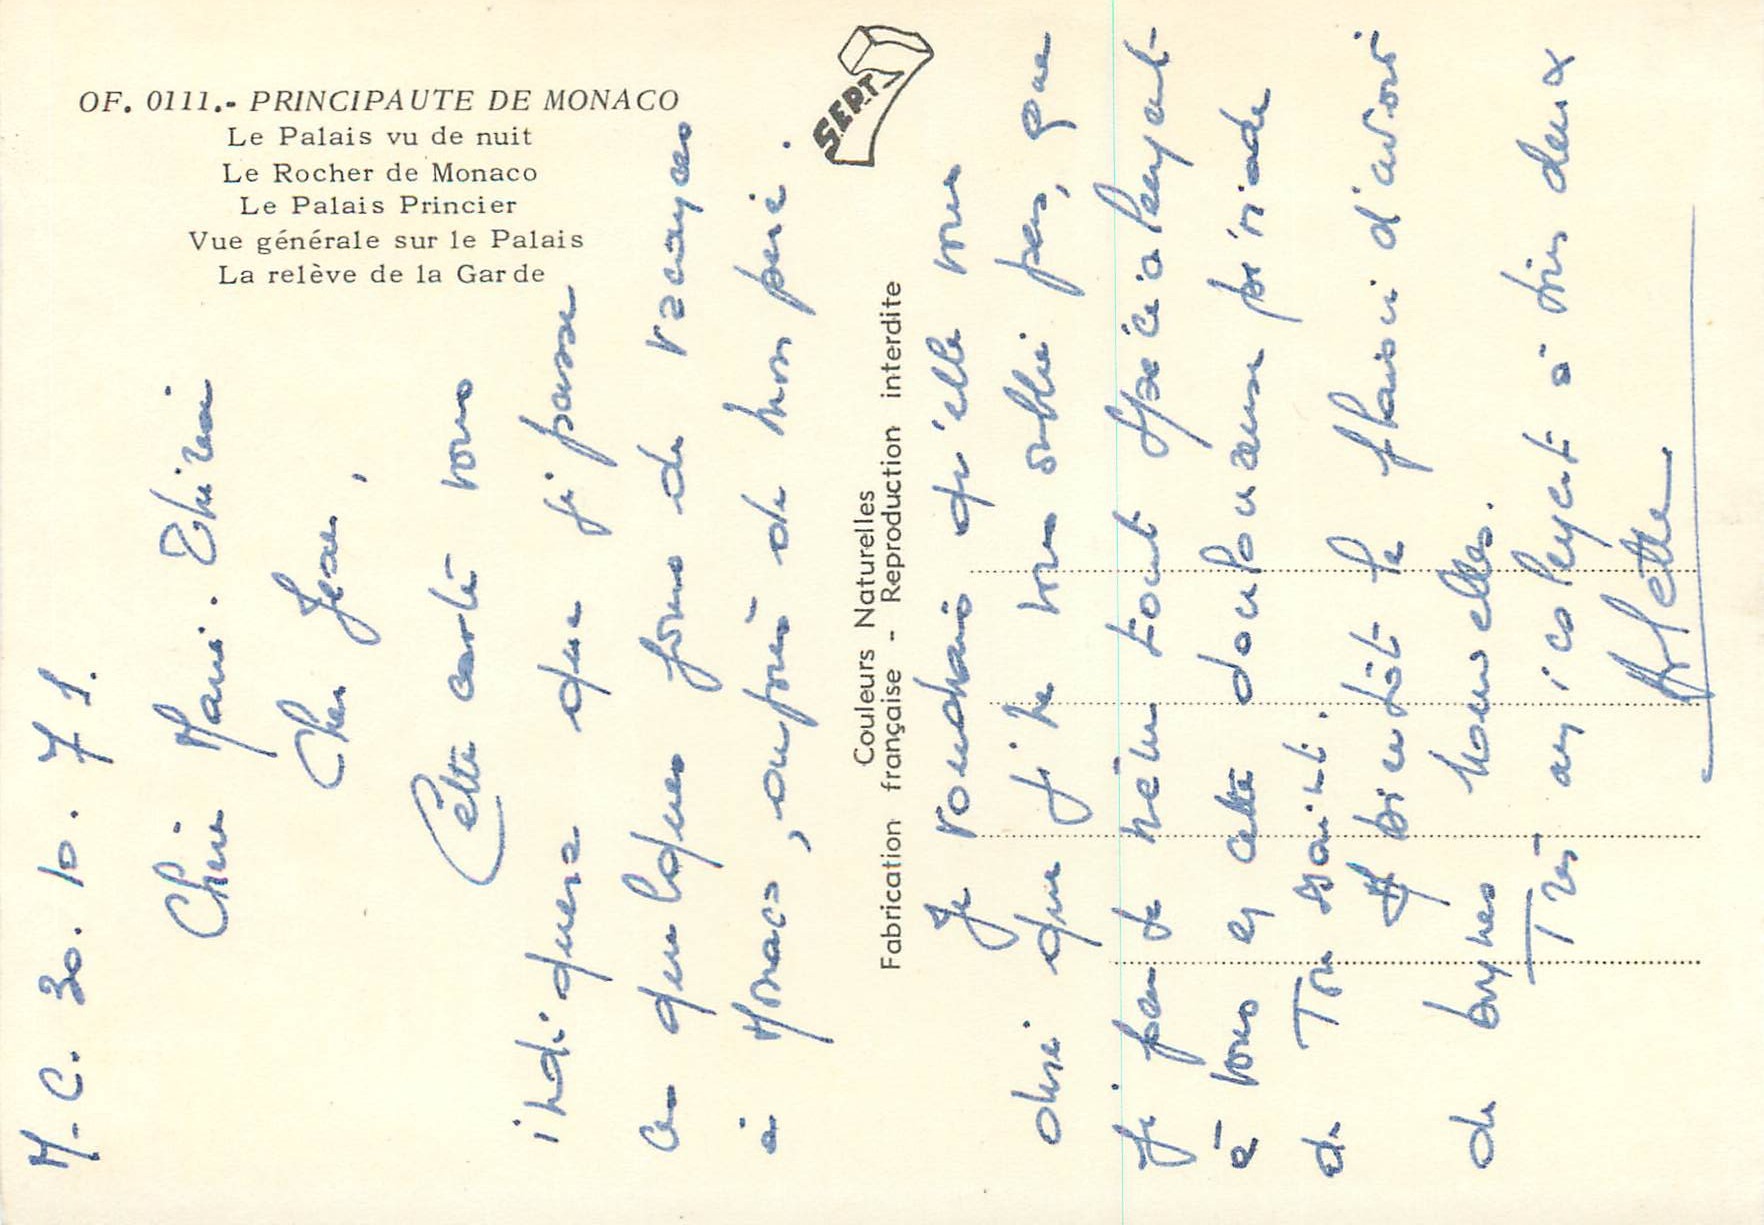 OF. 0111.- PRINCIPAUTE DE MONACO
Le Palais vu de nuit
Le Rocher de Monaco
Le Palais Princier
Vue générale sur le Palais
La relève de la Garde
S.E.P.T
Couleurs Naturelles
Fabrication française - Reproduction interdite
M-C. 30. 10. 71.
Chère Marie. Thérèse
Cher Jean,
Cette carte vous
indiquera que je passe
ces quelques jours de vacances
à Monaco, auprès de mon père.
Je voudrais qu'elle vous
dise que je ne vous oublie pas, que
je pense même tout spécialement
à vous en cette douloureuse période
de Toussaint.
A bientôt le plaisir d'avoir
de bonnes nouvelles.
Très amicalement à vous deux
Arlette